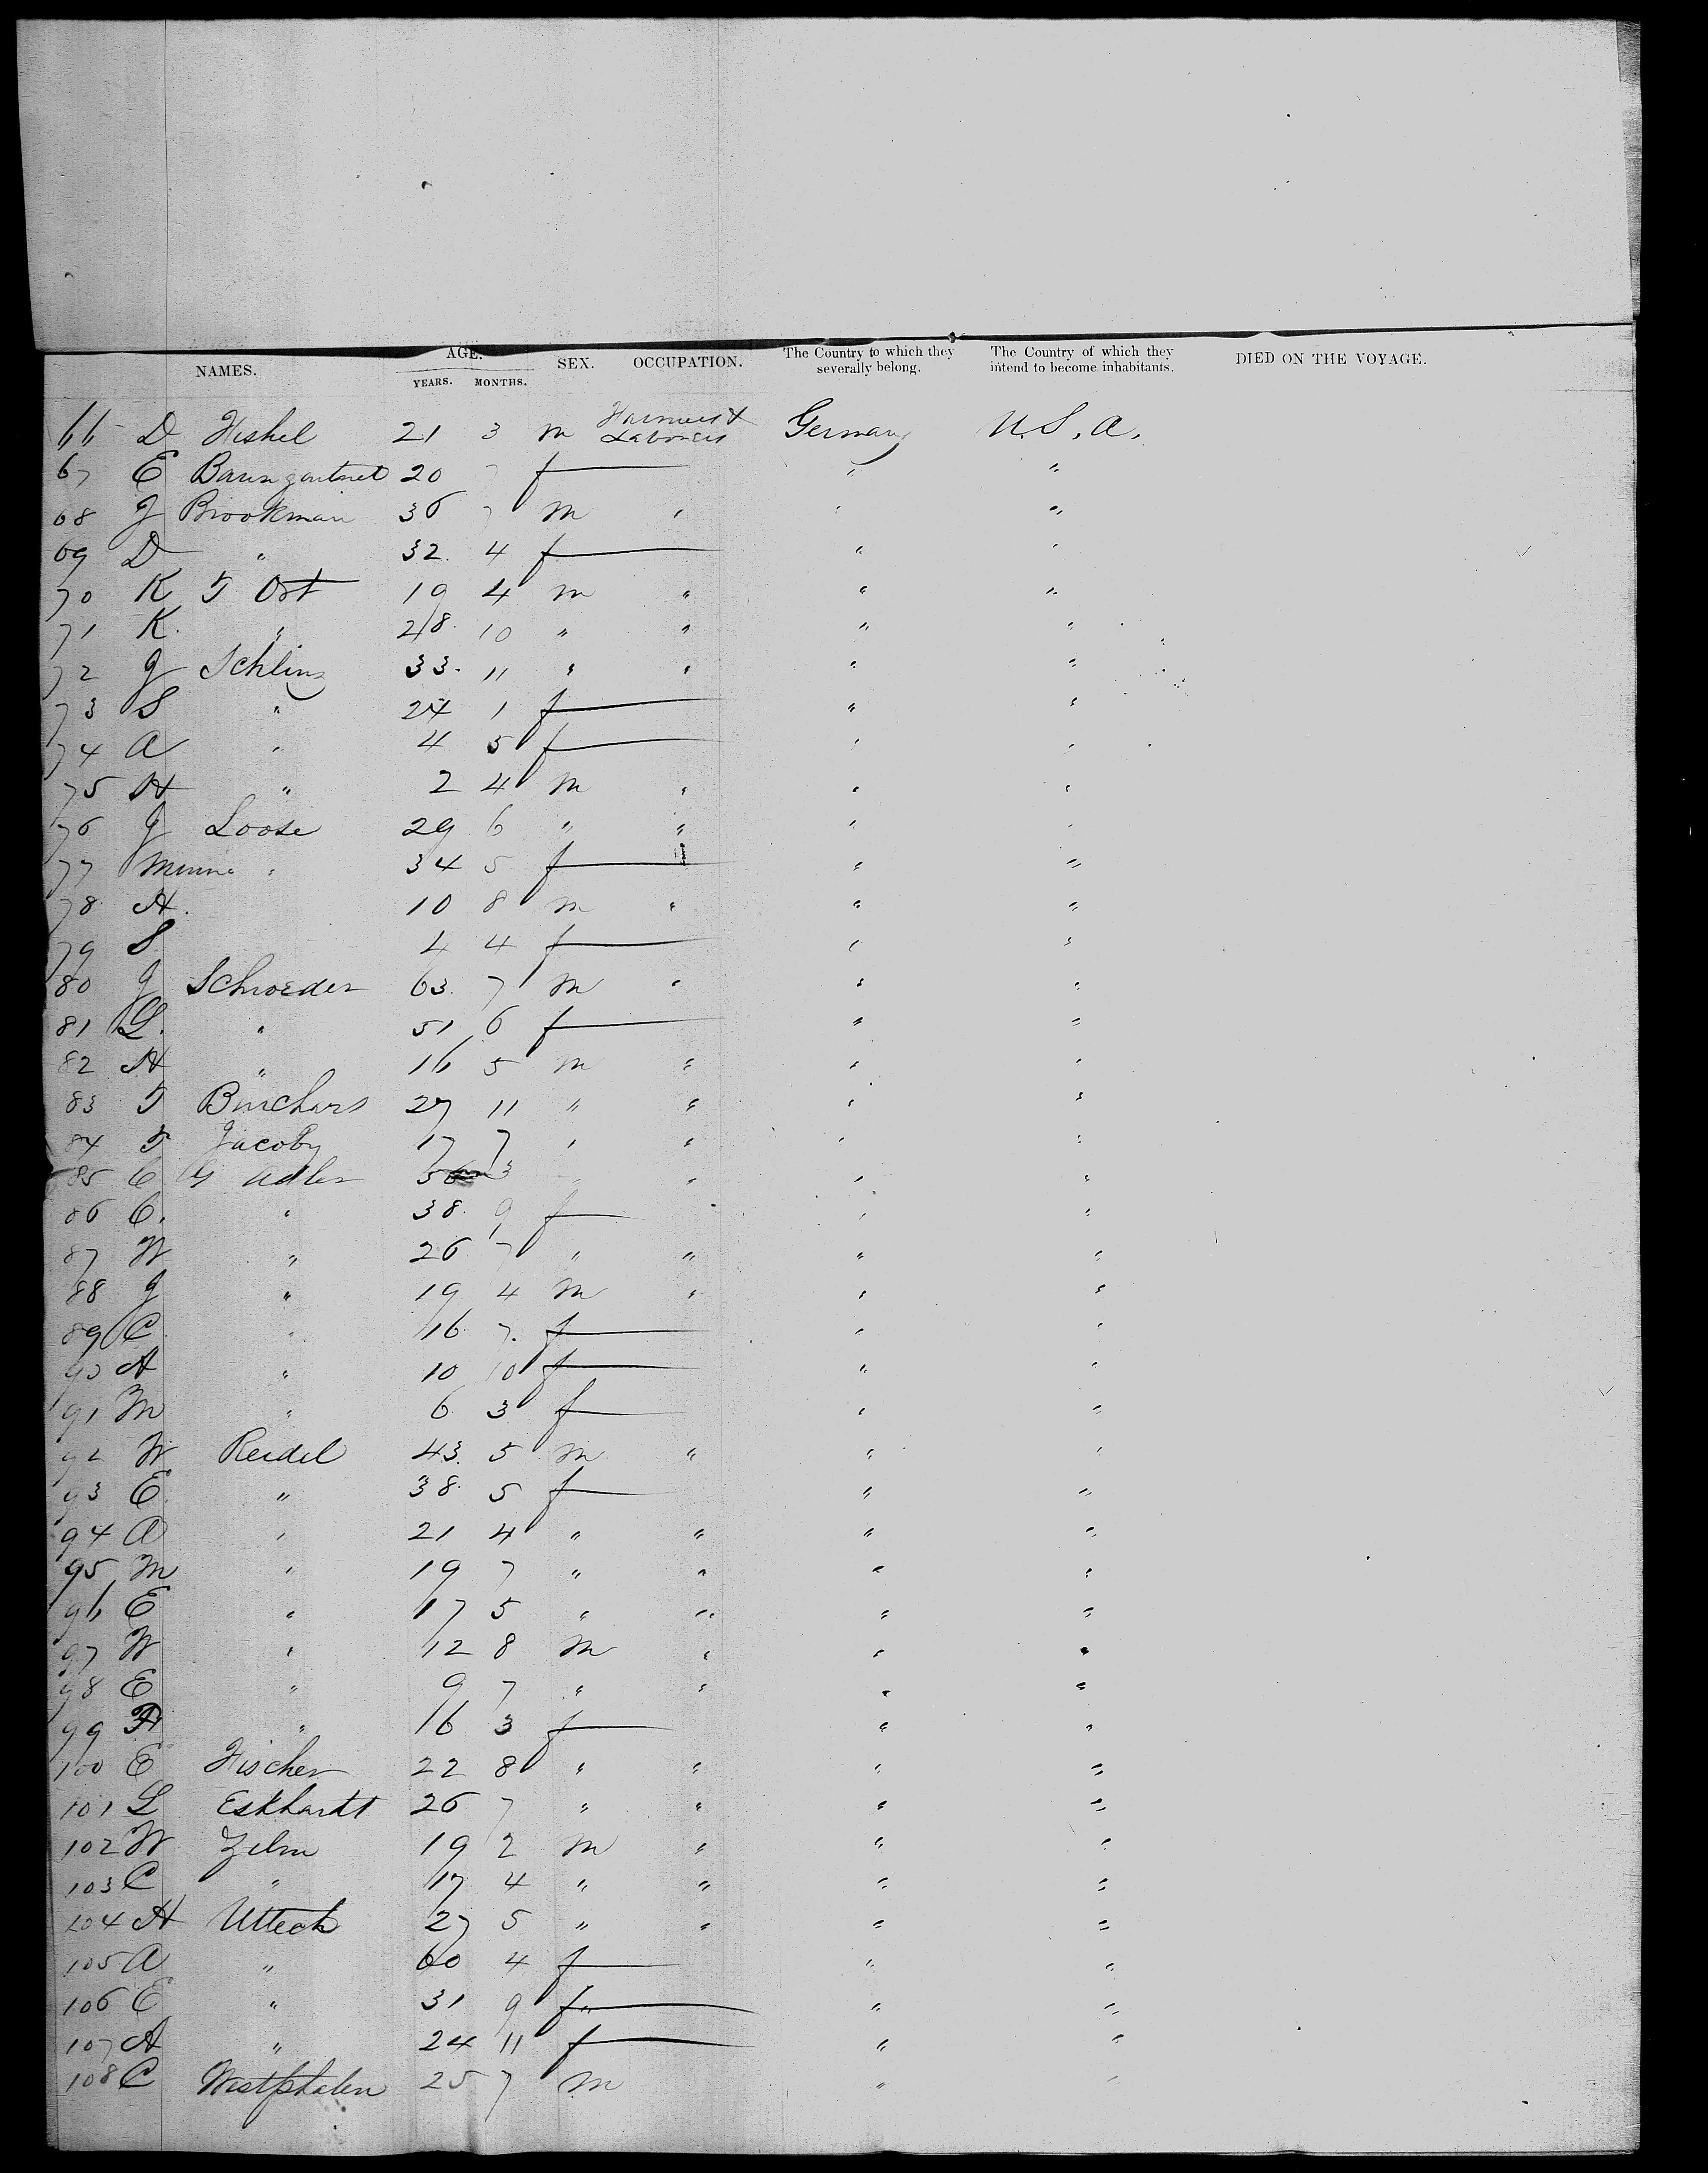 NAMES. AGE. YEARS. MONTHS. SEX. OCCUPATION. The Country to which they severally belong. The Country of which they intend to become inhabitants. DIED ON THE VOYAGE.
66 D Hishel 21 3 m Farmers & Laborers Germany U.S.A.
67 E Baumgartnet 20 7 f " "
68 J Brookman 36 7 m " " "
69 D " 32 4 f " "
70 K F Ost 19 4 m " " "
71 K. " 28 10 " " " "
72 J Schling 33 11 " " " "
73 S " 24 1 f " "
74 A " 4 5 f " "
75 H " 2 4 m " " "
76 J Loose 29 6 " " " "
77 Minna " 34 5 f " "
78 H. 10 8 m " " "
79 S 4 4 f " "
80 J Schroeder 63 7 m " " "
81 L. " 51 6 f " "
82 H " 16 5 m " " "
83 F Burchars 27 11 " " " "
84 F Jacoby 17 7 " " " "
85 C G Adler 56 3 " " " "
86 C. " 38 9 f " " "
87 W " 26 7 " " " "
88 J " 19 4 m " " "
89 C " 16 7 f " "
90 A " 10 10 f " "
91 M " 6 3 f " "
92 W Reidel 43 5 m " " "
93 E " 38 5 f " "
94 A " 21 4 " " " "
95 M " 19 7 " " " "
96 E " 17 5 " " " "
97 W " 12 8 m " " "
98 E " 9 7 " " " "
99 " 16 3 f " "
100 E Fischer 22 8 " " " "
101 L Eskhardt 26 7 " " " "
102 W Zelm 19 2 m " " "
103 C " 17 4 " " " "
104 H Utteck 27 5 " " " "
105 A " 60 4 f " "
106 E " 31 9 f " "
107 A " 24 11 f " "
108 C Westphalen 25 7 m " "